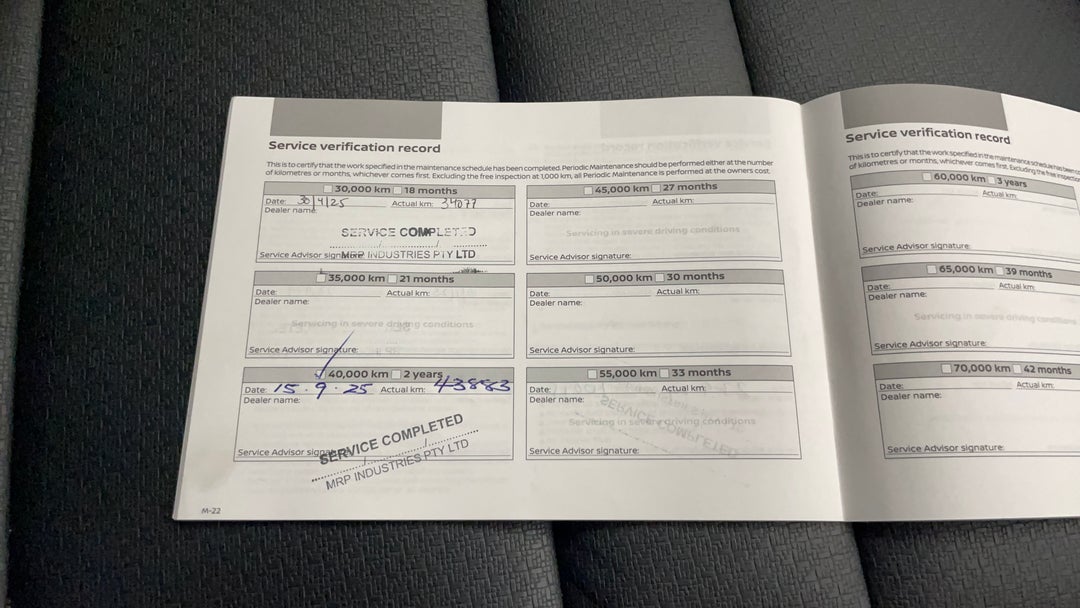 Service verification record
This is to certify that the work specified in the maintenance schedule has been completed. Periodic Maintenance should be performed either at the number
of kilometres or months, whichever comes first. Excluding the free inspection at 1,000 km, all Periodic Maintenance is performed at the owners cost.
30,000 km 18 months
Date: 30/4/25 Actual km: 34077
Dealer name:
SERVICE COMPLETED
Service Advisor signature:
MRP INDUSTRIES PTY LTD
35,000 km 21 months
Date: Actual km:
Dealer name:
Servicing in severe driving conditions
Service Advisor signature:
40,000 km 2 years
Date: 15.9.25 Actual km: 43883
Dealer name:
SERVICE COMPLETED
Service Advisor signature:
MRP INDUSTRIES PTY LTD
M-22
45,000 km 27 months
Date: Actual km:
Dealer name:
Servicing in severe driving conditions
Service Advisor signature:
50,000 km 30 months
Date: Actual km:
Dealer name:
Service Advisor signature:
55,000 km 33 months
Date: Actual km:
Dealer name:
Servicing in severe driving conditions
Service Advisor signature:
Service verification record
This is to certify that the work specified in the maintenance schedule has been
of kilometres or months, whichever comes first. Excluding the free
60,000 km 3 years
Date: Actual km:
Dealer name:
Service Advisor signature:
65,000 km 39 months
Date: Actual km:
Dealer name:
Servicing in severe driving conditions
Service Advisor signature:
70,000 km 42 months
Date: Actual km:
Dealer name:
Service Advisor signature: